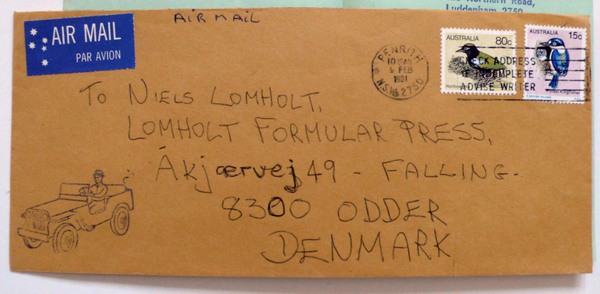 Northern Road,
Luddenham 2750
AIR MAIL
AIR MAIL
PAR AVION
AUSTRALIA 80c
AUSTRALIA 15c
PENRITH
5 FEB
1981
N.S.W. 2750
CK ADDRESS
IF INCOMPLETE
ADVISE WRITER
To NIELS LOMHOLT,
LOMHOLT FORMULAR PRESS,
Åkjærvej 49 - FALLING.
8300 ODDER
DENMARK